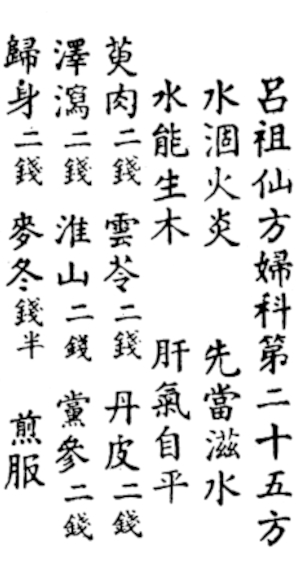 呂祖仙方婦科第二十五方
水涸火炎　先當滋水
水能生木　肝氣自平
萸肉二錢　雲苓二錢　丹皮二錢
澤瀉二錢　淮山二錢　黨參二錢
歸身二錢　麥冬錢半　煎服